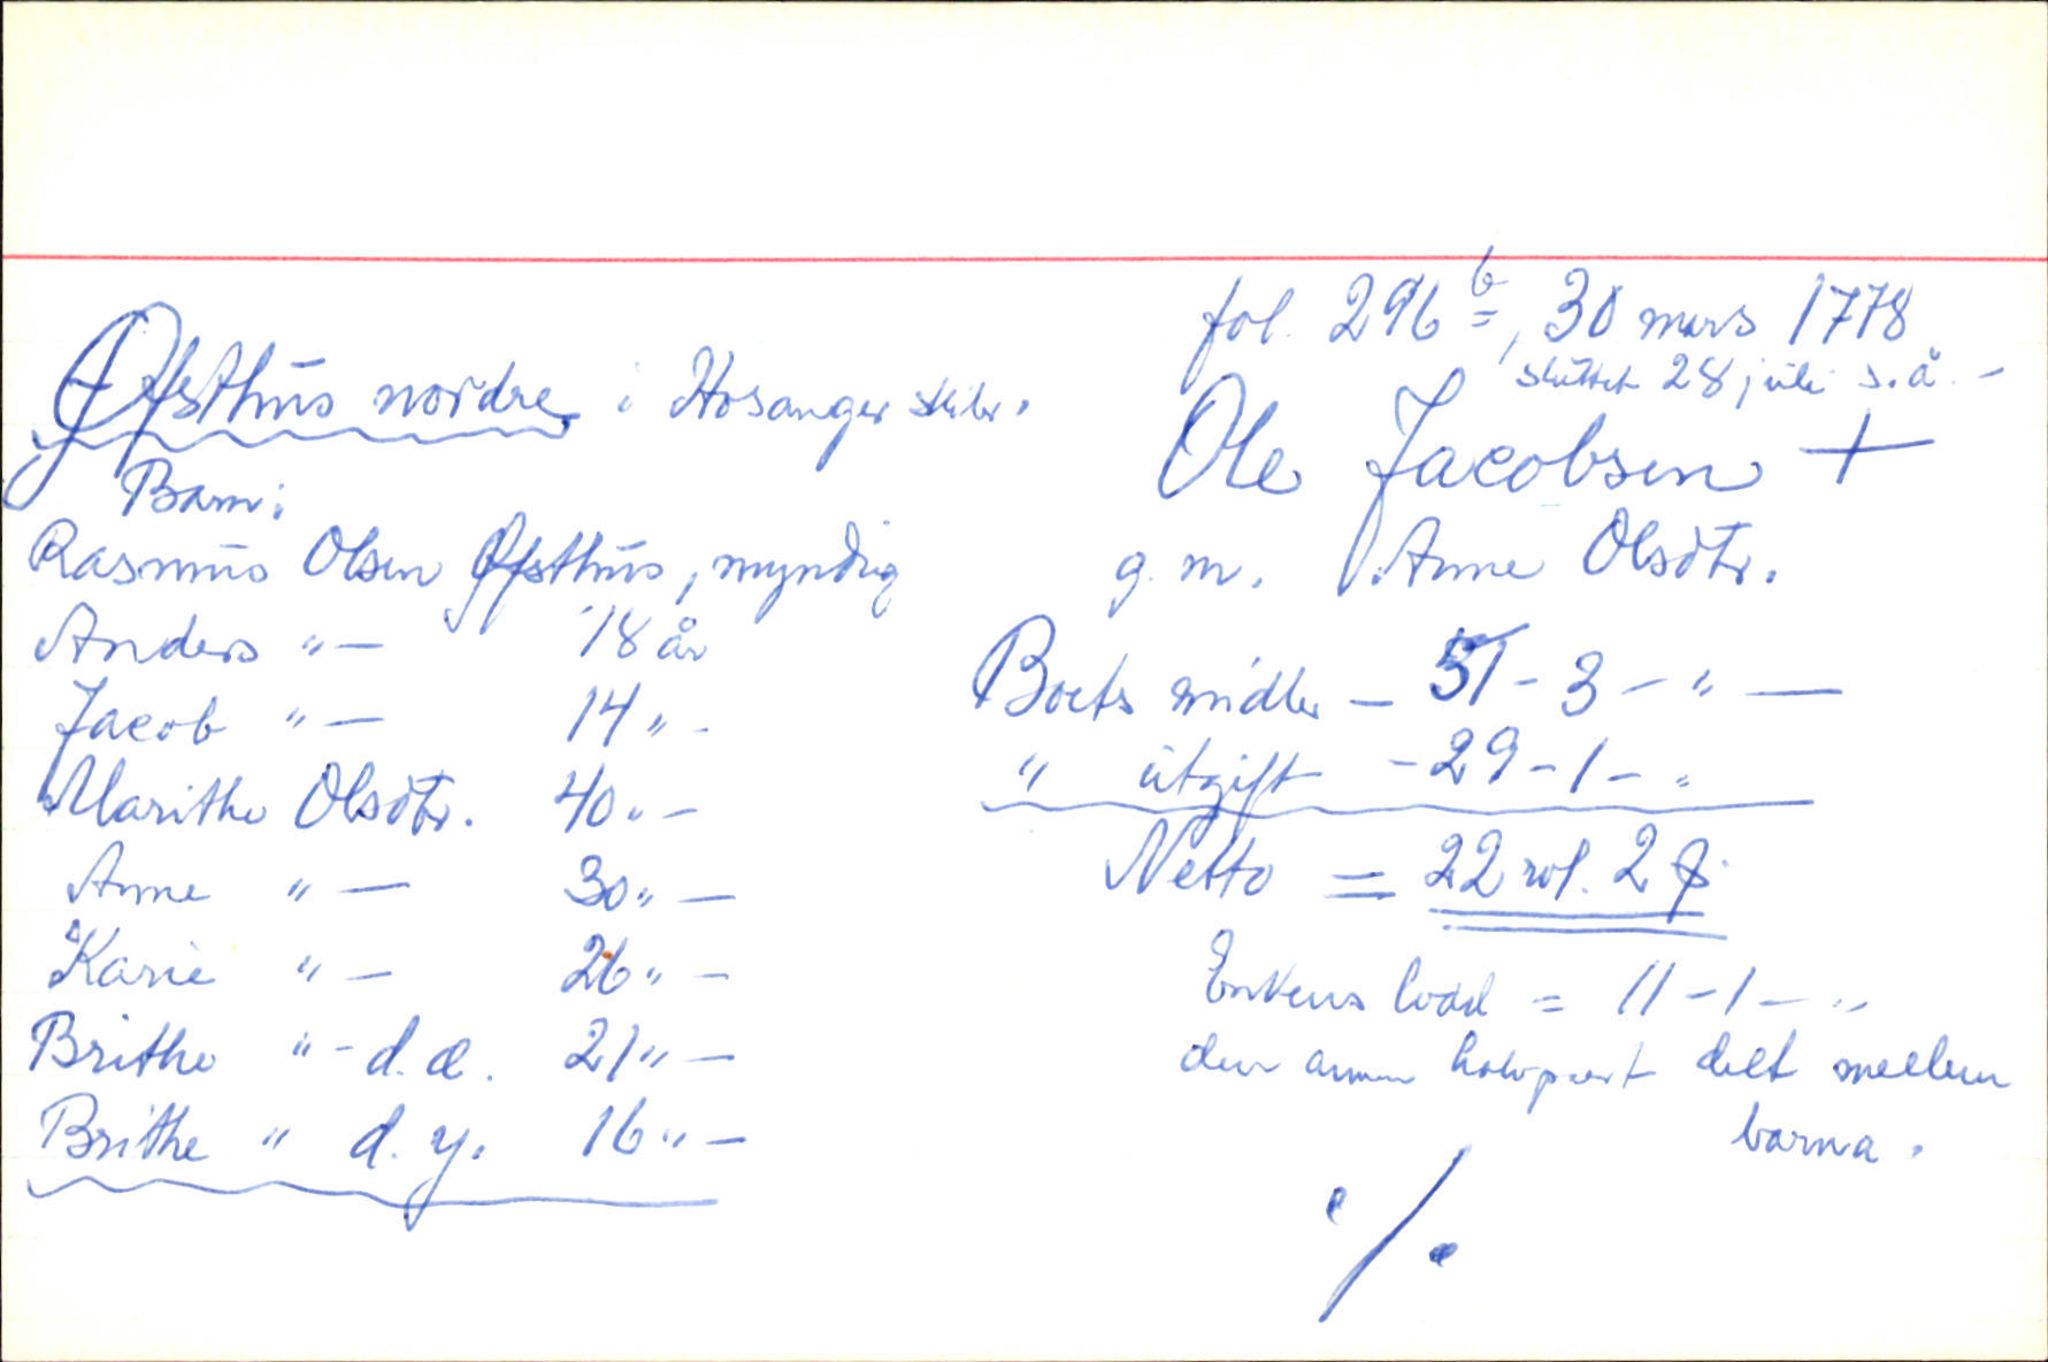 fol. 296 b, 30 mars 1778
sluttet 28 juli s.å. -
Øfsthus nordre i Hosanger skibr.
Ole Jacobsen +
g. m. Anne Olsdtr.
Barn:
Rasmus Olsen Øfsthus, myndig
Anders "— 18 år
Jacob "— 14 " -
Marithe Olsdtr. 40 " -
Anne "— 30 " —
Karie "— 26 " -
Brithe " - d. æ. 21 " —
Brithe " d. y. 16 " —
Boets midler — 51 - 3 - " —
" utgift - 29 - 1 - "
Netto = 22 rd. 2
Enkens lodd = 11 - 1 - "
den annen halvpart delt mellem
barna.
·/.